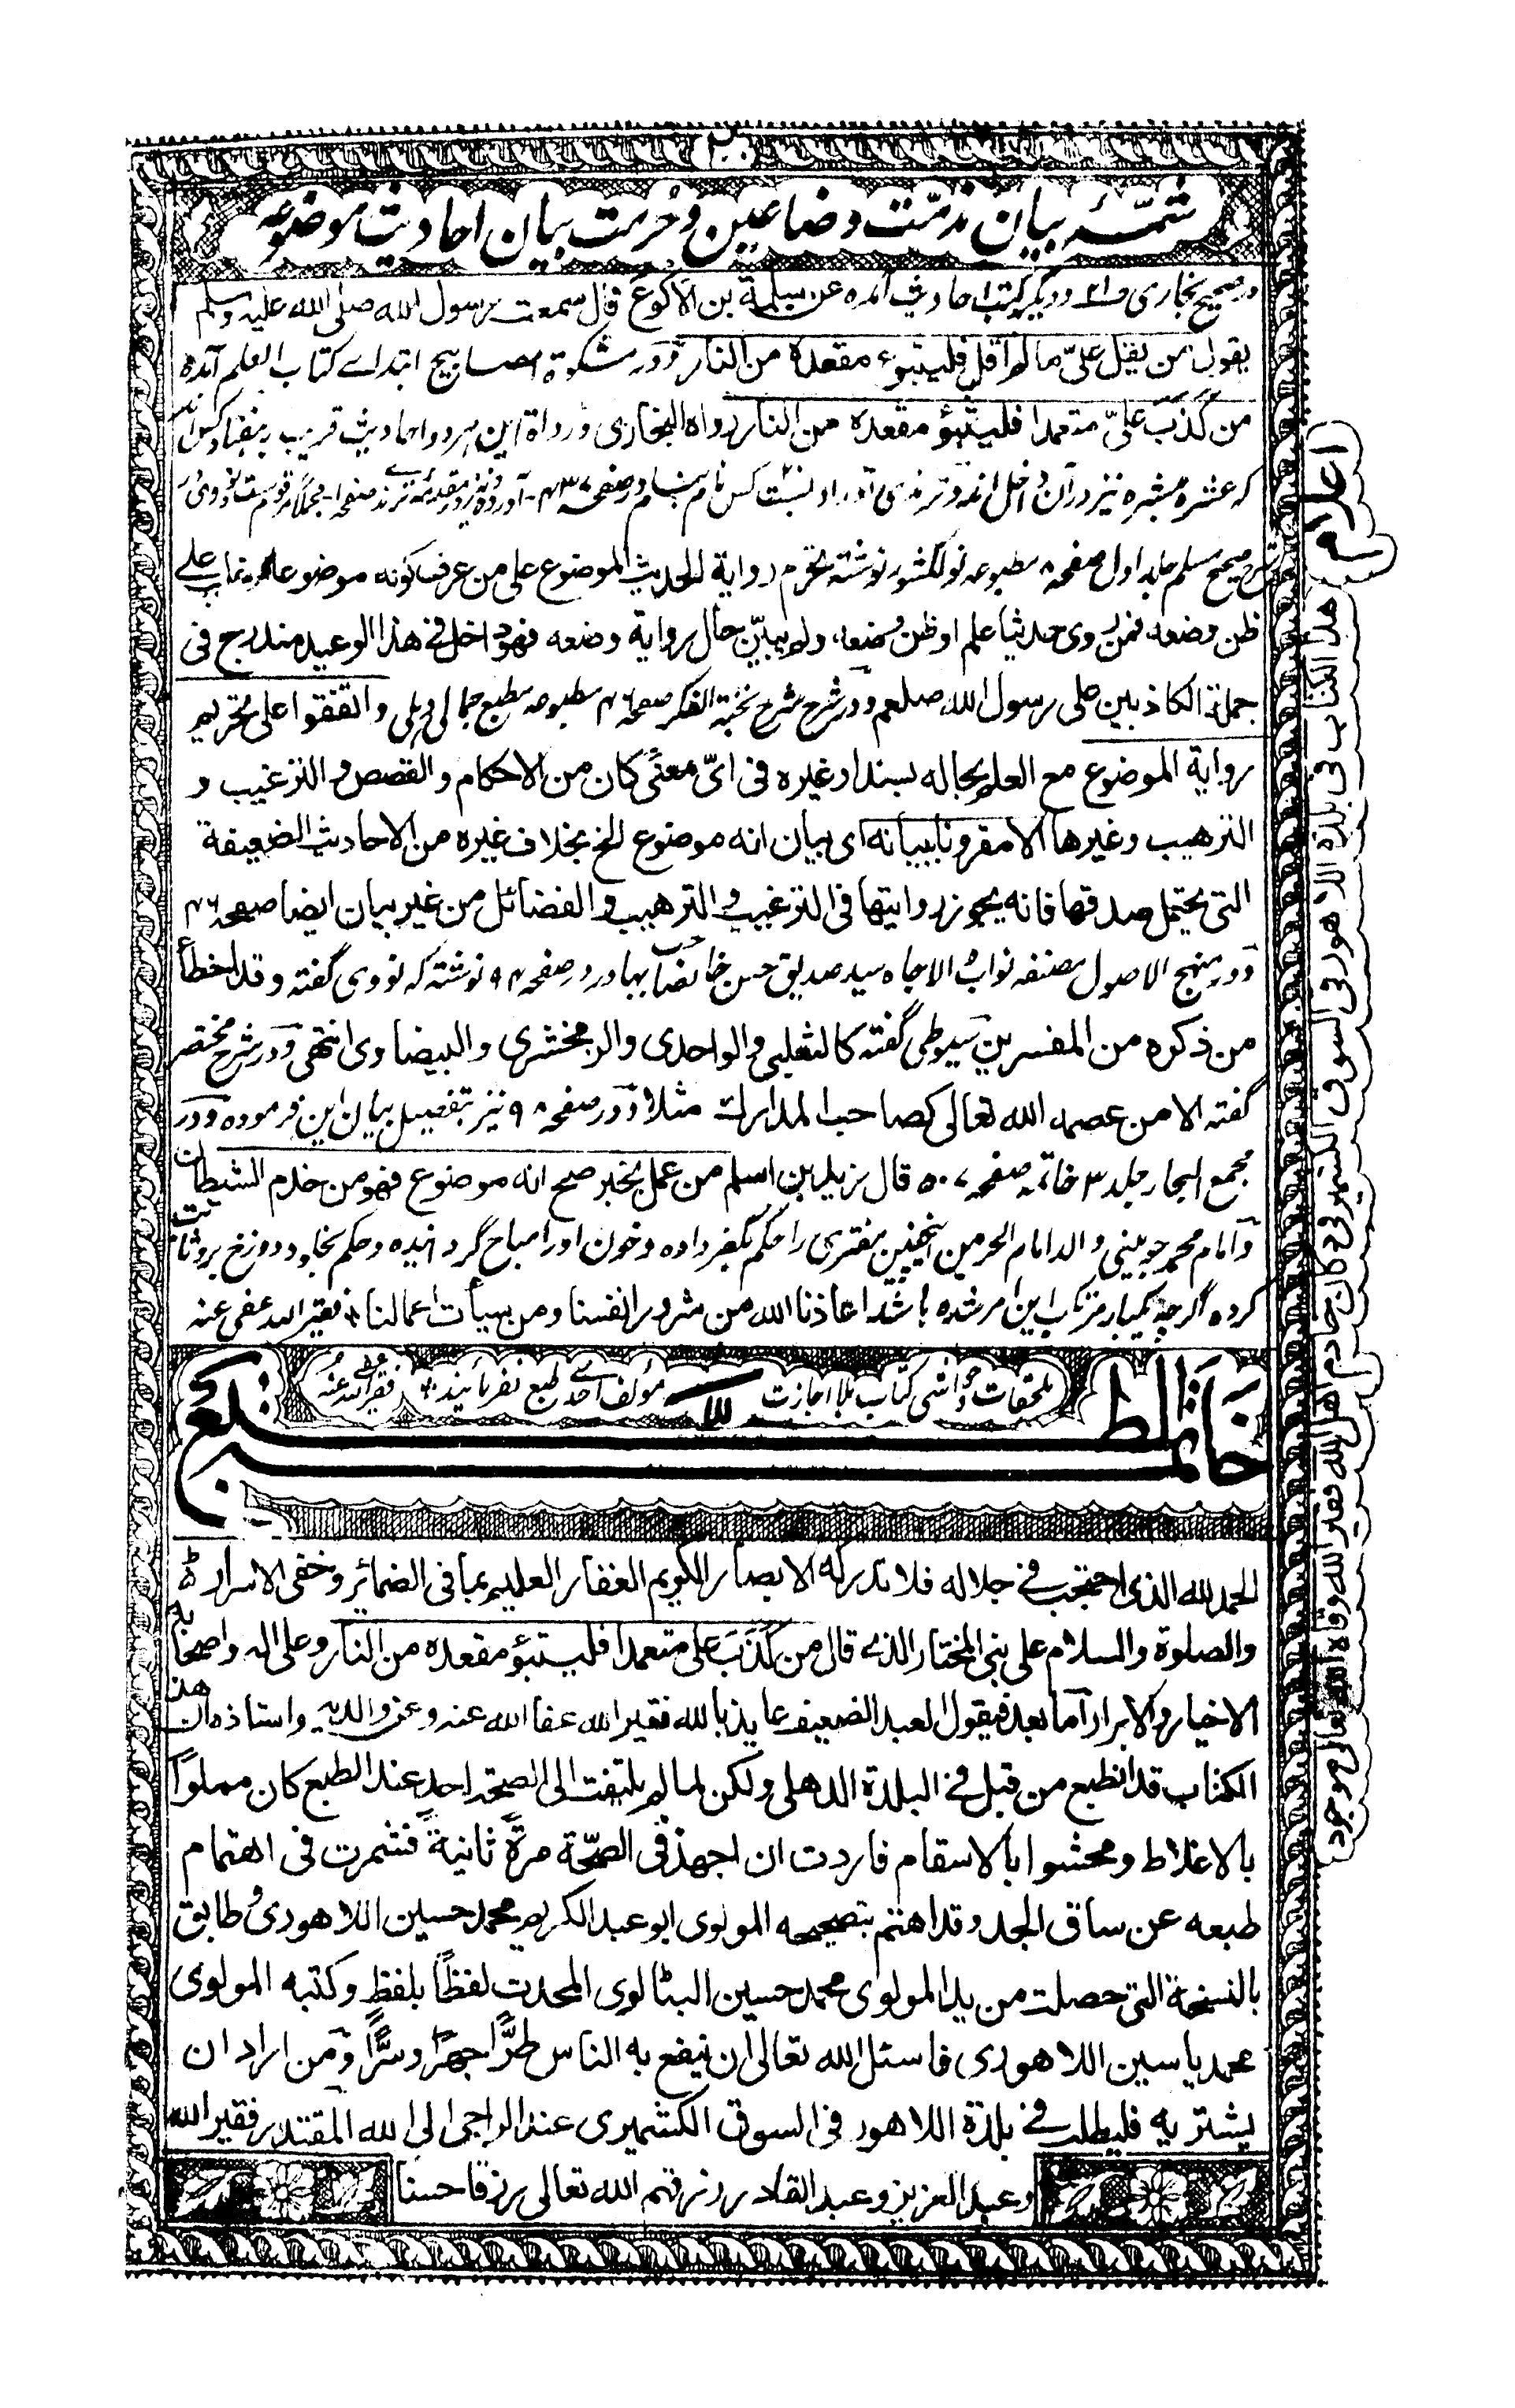 تتمہ بیان مذمت وضاعین و حرمت بیان احادیث موضوعہ
در صحیح بخاری و دیگر کتب احادیث آمده عن سلمة بن الاکوع قال سمعت رسول الله صلی الله علیه وسلم
یقول من یقل علیّ مالم اقل فلیتبوء مقعده من النار و در مشکوة مصابیح ابتداے کتاب العلم آمده
من کَذَبَ علیّ متعمدا فلیتبؤ مقعده من النار رواه البخاری و رواة این هر دو احادیث قریب بهفتاد کس اند
که عشره مبشره نیز در آن داخل اند و ترمذی
شرح صحیح مسلم جلد اول صفحه ۸ مطبوعه نولکشور نوشته تحرم روایة الحدیث الموضوع علی من عرف کونه موضوعا او غلب علی
ظن وضعه فمن روی حدیثا علم او ظن وضعه ولم یبیّن حال روایة وضعه فهو داخل فی هذا الوعید مندرج فی
جملة الکاذبین علی رسول الله صلعم و در شرح شرح نخبة الفکر صفحه مطبوعه مطبع جمالی دہلی واتفقوا علی تحریم
روایة الموضوع مع العلم بحاله بسند او غیره فی ایّ معنًی کان من الاحکام والقصص والترغیب و
الترهیب وغیرها الا مقرونا ببیانه ای ببیان انه موضوع الخ بخلاف غیره من الاحادیث الضعیفة
التی یحتمل صدقها فانه یجوز روایتها فی الترغیب والترهیب والفضائل من غیر بیان ایضا صفحه
و در منهج الاصول مصنفه نواب والاجاه سید صدیق حسن خانصاحب بهادر در صفحه نوشته که نووی گفته وقد اخطأ
من ذکره من المفسرین سیوطی گفته کالثعلبی والواحدی والزمخشری والبیضاوی انتهی و در شرح مختصر
گفته الا من عصمه الله تعالی کصاحب المدارک مثلا و در صفحه ۹۸ نیز بتفصیل بیان این فرموده و در
مجمع البحار جلد ۳ خاتمه صفحه ۵۰۷ قال زید بن اسلم من عمل بخبر صح انه موضوع فهو من خدم الشیطان
و امام محمد جوینی والد امام الحرمین اینچنین مفتری را حکم بکفر داده و خون او را مباح گردانیده و حکم بخلود دوزخ برو ثابت
کرده اگرچه یکبار مرتکب این امر شده باشد اعاذنا الله من شرور انفسنا ومن سیأت اعمالنا فقیر الله عفی عنه
ملحقات و حواشی کتاب بلا اجازت مؤلف احدے طبع نفرمایند فقیر الله عفی عنه
خاتمة الطبع
الحمد لله الذی احتجب فی جلاله فلا تدرکه الابصار الکریم الغفار العلیم بما فی الضمائر وخفی الاسرار
والصلوة والسلام علی نبی المختار الذی قال من کَذَبَ علی متعمدا فلیتبؤ مقعده من النار وعلی اله واصحابه
الاخیار والابرار اما بعد فیقول العبد الضعیف عایذ بالله فقیر الله عفا الله عنه وعن والدیه واستاذه ان هذا
الکتاب قد انطبع من قبل فی البلدة الدهلی ولکن لما لم یلتفت الی الصحة احد عند الطبع کان مملواً
بالاغلاط ومحشوا بالاسقام فاردت ان اجهد فی الصحّة مرةً ثانیةً فشمرت فی اهتمام
طبعه عن ساق الجد وقد اهتم بتصحیحه المولوی ابو عبد الکریم محمد حسین اللاهوری وطابق
بالنسخة التی حصلت من ید المولوی محمد حسین البٹالوی المحدث لفظًا بلفظٍ وکتبه المولوی
محمد یاسین اللاهوری فاسئل الله تعالی ان ینفع به الناس طرًّا جهرًا وسرًّا ومن اراد ان
یشتریه فلیطلب فی بلدة اللاهور فی السوق الکشمیری عند الراجی الی الله المقتدر فقیر الله
وعبد العزیز وعبد القادر رزقهم الله تعالی رزقا حسنا
اعلام
هذا الکتاب فی بلدة اللاهور فی السوق الکشمیری فی دکان خادم اهل الله فقیر الله وقاه الله تعالی موجود